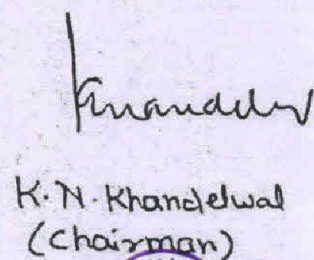 Khandelw
K. N. Khandelwal
(Chairman)